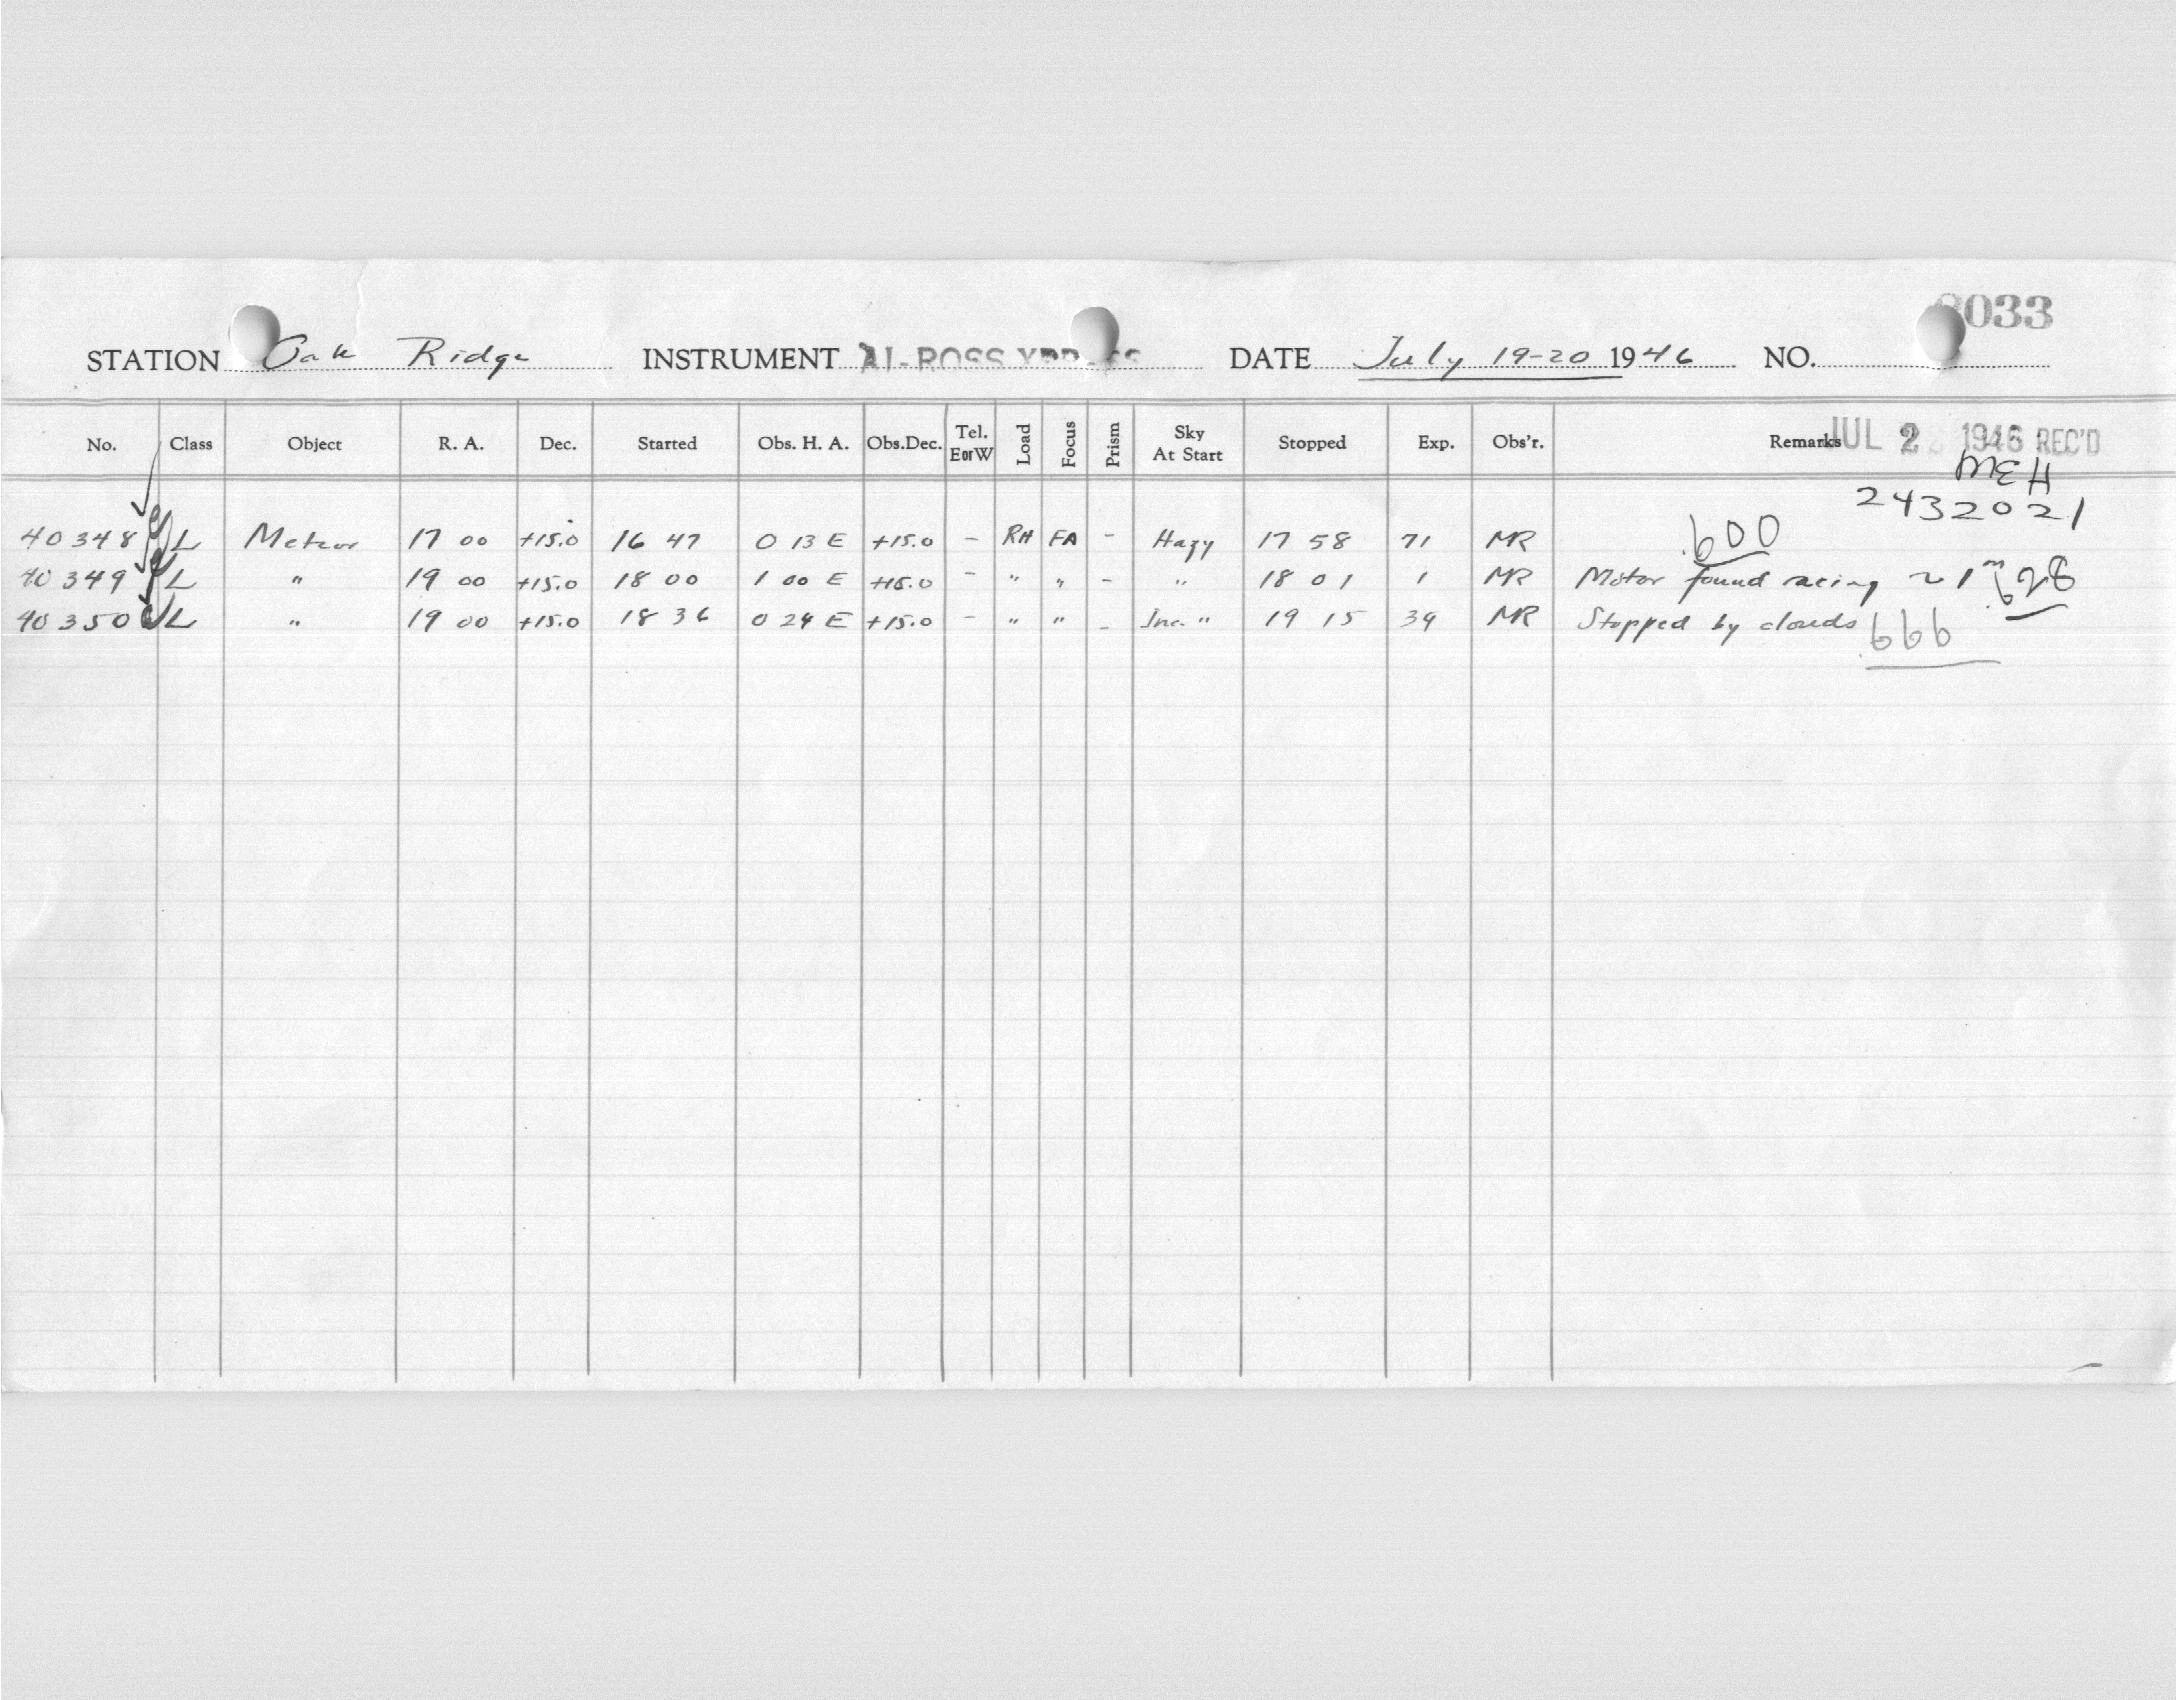 033
STATION Oak Ridge INSTRUMENT AI-ROSS DATE July 19-20 1946 NO.
No. Class Object R. A. Dec. Started Obs. H. A. Obs.Dec. Tel. EorW Load Focus Prism Sky At Start Stopped Exp. Obs'r. Remarks JUL 2 1946 REC'D
MEH
2432021
40348 L Meteor 17 00 +15.0 16 47 0 13 E +15.0 - RH FA - Hazy 17 58 71 MR .600
40349 L " 19 00 +15.0 18 00 1 00 E +15.0 - " " - " 18 01 1 MR Motor found racing ~ 1m .628
40350 L " 19 00 +15.0 18 36 0 24 E +15.0 - " " - Inc. " 19 15 39 MR Stopped by clouds .666